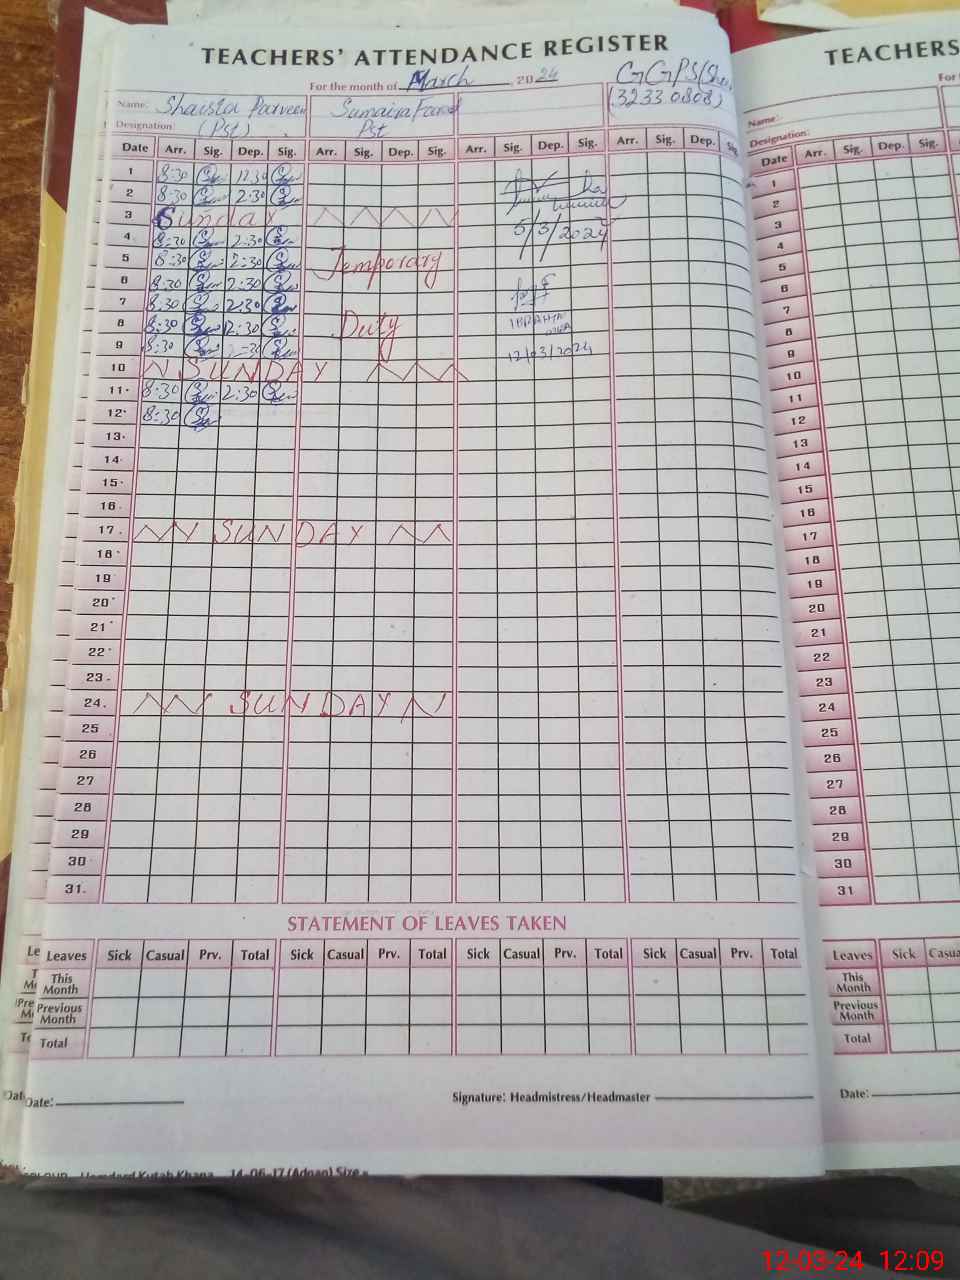 TEACHERS' ATTENDANCE REGISTER
For the month of March, 2024
GGPS
(32330808)
Name: Shaista Parveen Sumaira
Designation: (Pst) Pst
Date Arr. Sig. Dep. Sig. Arr. Sig. Dep. Sig. Arr. Sig. Dep. Sig. Arr. Sig. Dep. Sig.
1 8:30 12:30
2 8:30 2:30
3 Sunday
4 8:30 2:30 5/3/2024
5 8:30 2:30 Temporary
6 8:30 2:30
7 8:30 2:30
8 8:30 2:30 Duty
9 8:30 2:30 12/03/2024
10 SUNDAY
11 8:30 2:30
12 8:30
13
14
15
16
17 SUNDAY
18
19
20
21
22
23
24 SUNDAY
25
26
27
28
29
30
31
STATEMENT OF LEAVES TAKEN
Leaves Sick Casual Prv. Total Sick Casual Prv. Total Sick Casual Prv. Total Sick Casual Prv. Total
This Month
Previous Month
Total
Date: Signature: Headmistress/Headmaster
Hamdard Kutab Khana 14-06-17 (Adnan) Size
TEACHERS
Name:
Designation:
Date Arr. Sig. Dep. Sig.
1
2
3
4
5
6
7
8
9
10
11
12
13
14
15
16
17
18
19
20
21
22
23
24
25
26
27
28
29
30
31
Leaves Sick
This Month
Previous Month
Total
Date:
12-03-24 12:09